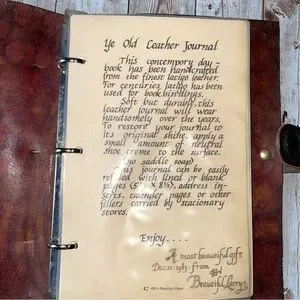 Ye Old Leather Journal
This contempory day-
book has been handcrafted
from the finest latigo leather.
For centuries latigo has been
used for bookbindings.
Soft but durable, this
leather journal will wear
handsomely over the years.
To restore your journal to
its original shine, apply a
small amount of neutral
shoe creme to the surface.
(no saddle soap)
This journal can be easily
refilled with lined or blank
pages (5½" x 8½"), address in-
serts, calender pages or other
fillers carried by stationary
stores.
Enjoy....
A most beautiful gift
Dec. 25 1983 from
Beautiful Larry
© 100% Recycled Paper